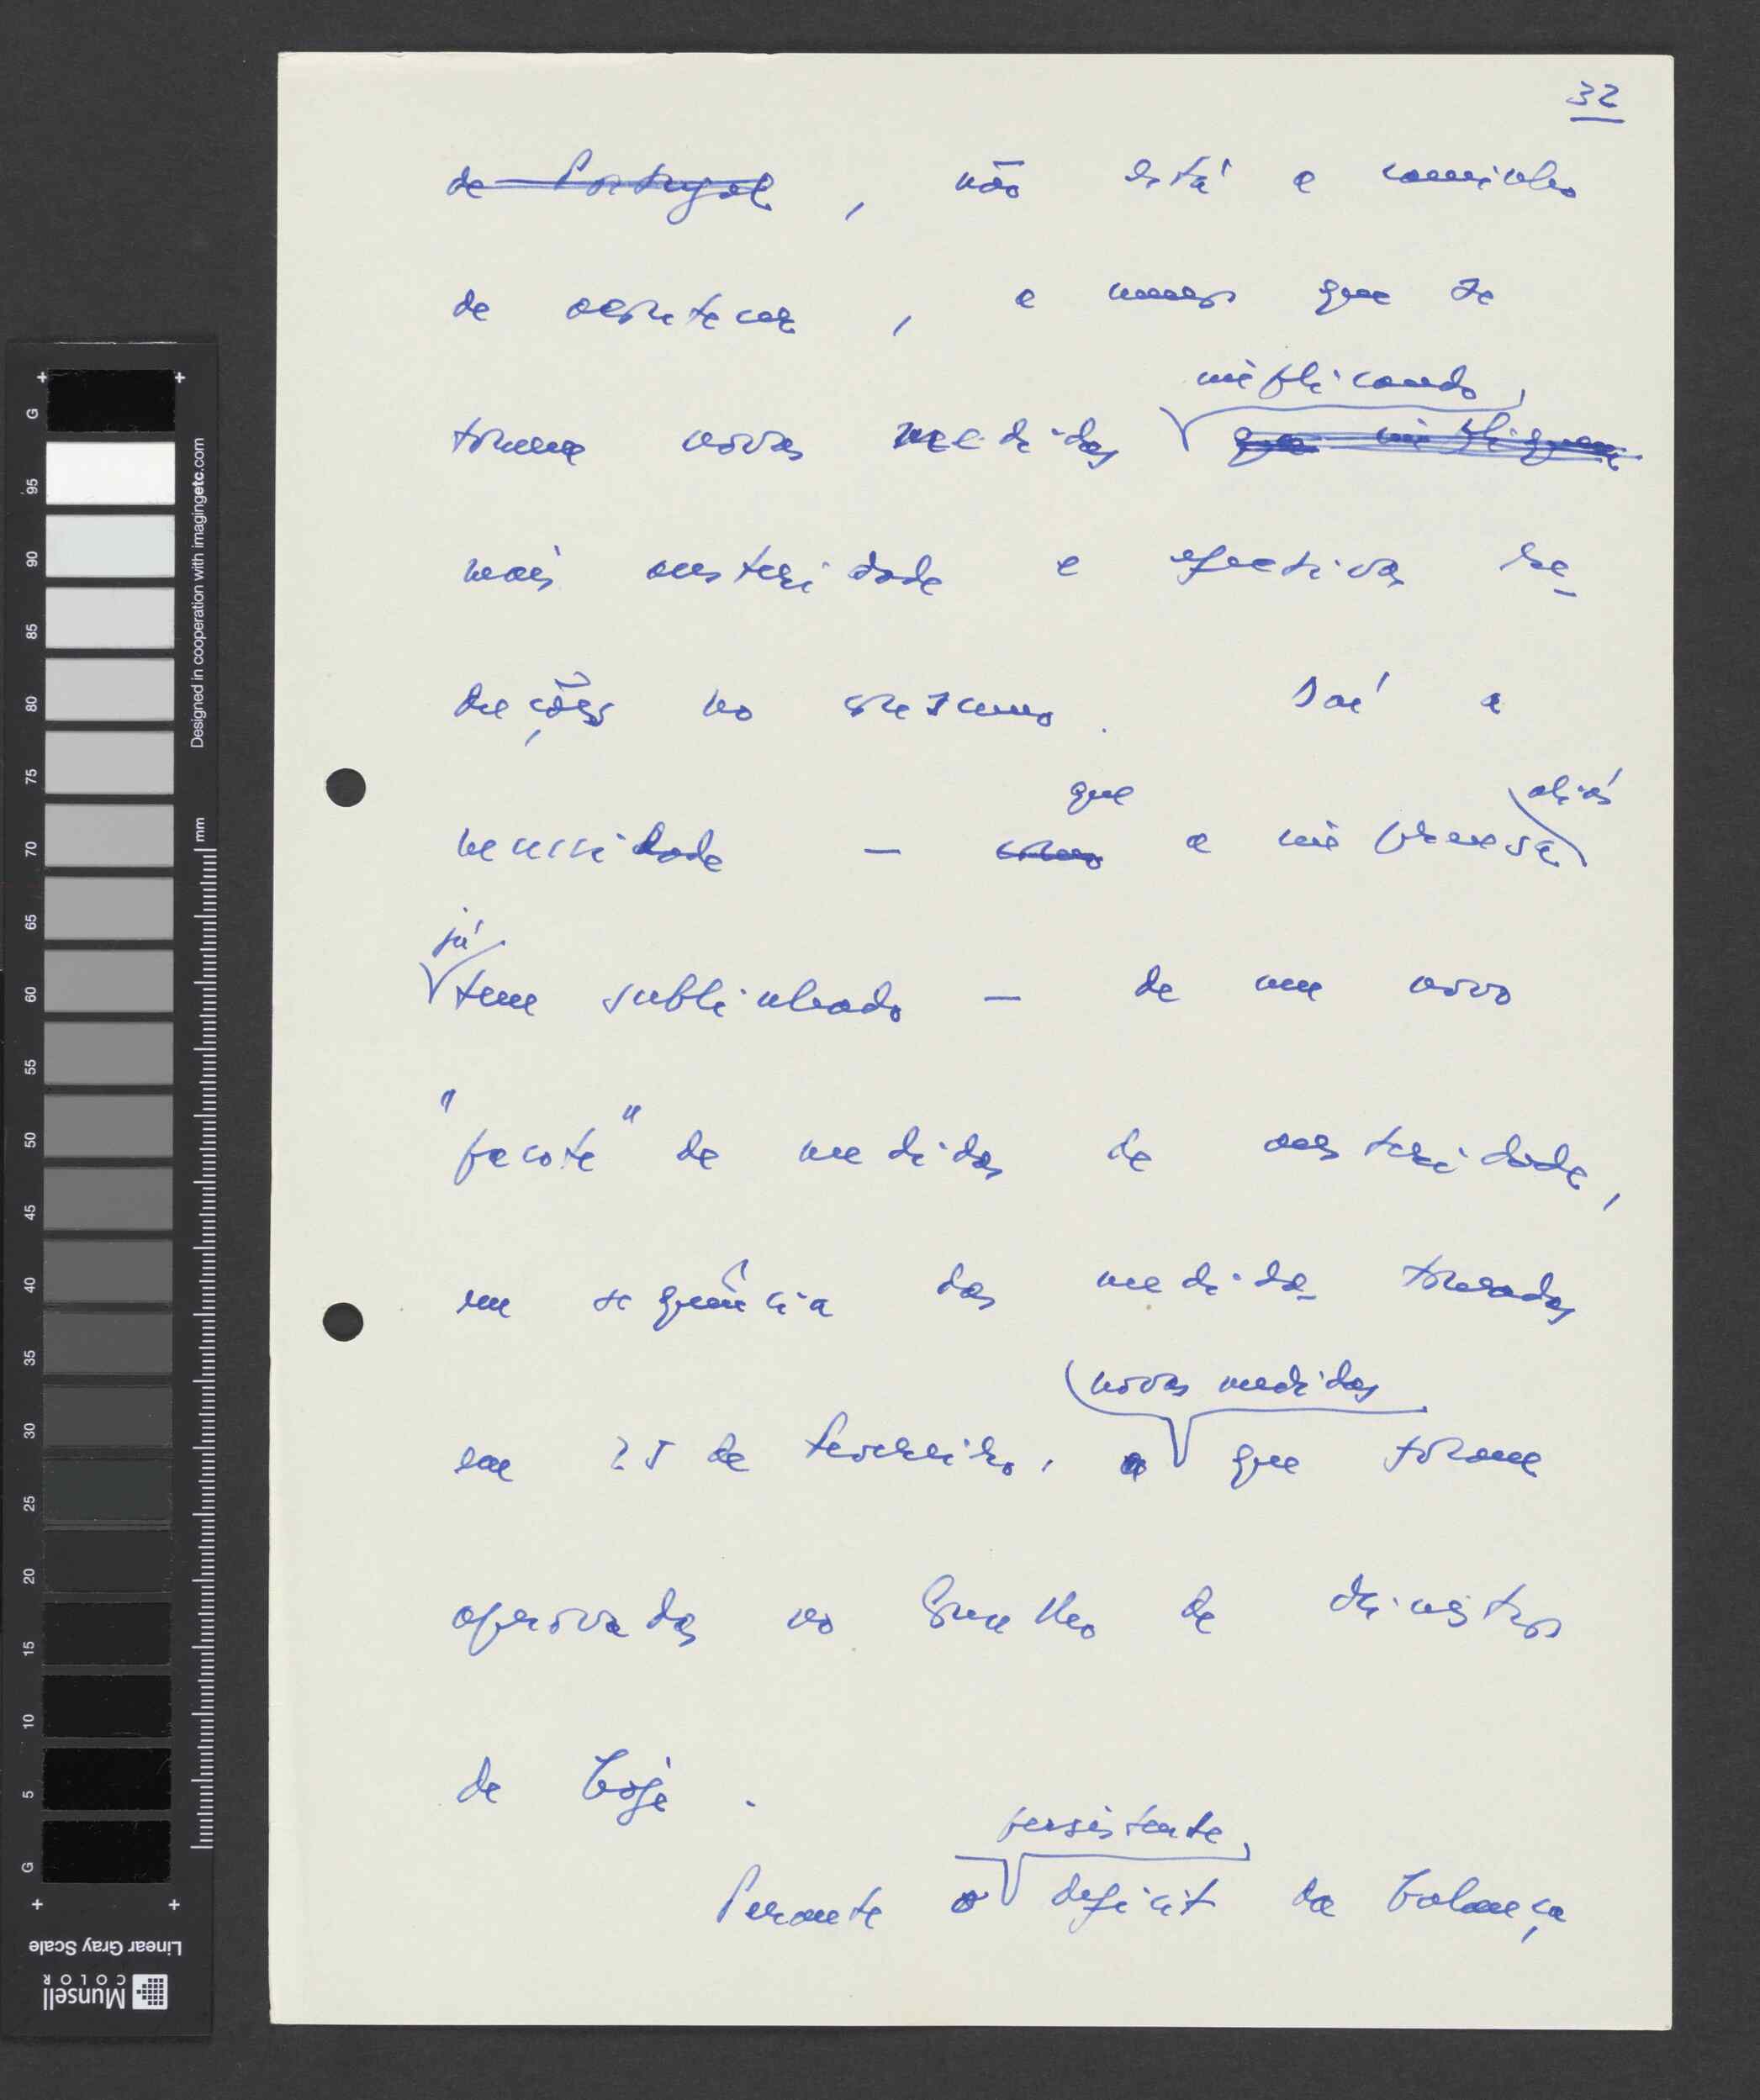 32
de Portugal, não está a caminho
de acontecer, a menos que se
implicando,
tomem novas medidas que impliquem
mais austeridade e efectivas re-
duções no consumo. Daí a
que aliás
necessidade — como a imprensa
já
tem sublinhado — de um novo
"pacote" de medidas de austeridade,
em sequência das medidas tomadas
novas medidas
em 25 de Fevereiro, a que foram
aprovadas no Conselho de Ministros
de hoje.
persistente
Perante o deficit da balança
G
95
90
85
80
75
70
65
60
55
50
45
40
35
30
25
20
15
10
5
G
mm
Designed in cooperation with imagingetc.com
Linear Gray Scale
Munsell
COLOR